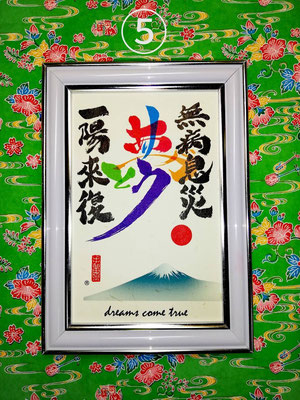 ⑤
無病息災
夢
一陽來復
®
dreams come true